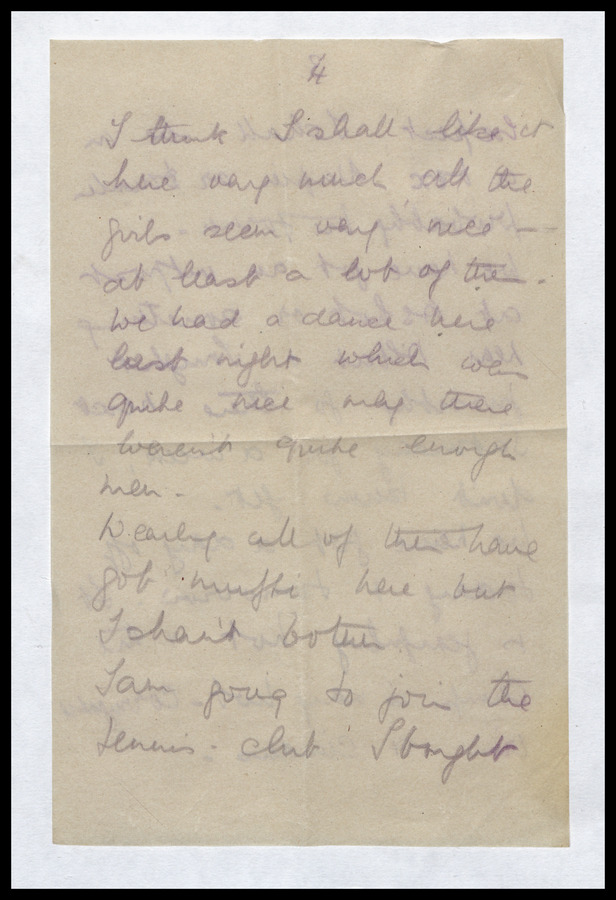 4
I think I shall like it
here very much all the
girls seem very nice —
at least a lot of them.
We had a dance here
last night which was
quite nice only there
weren't quite enough
men -
Nearly all of them have
got mufti here but
I shan't bother
I am going to join the
tennis - club I bought